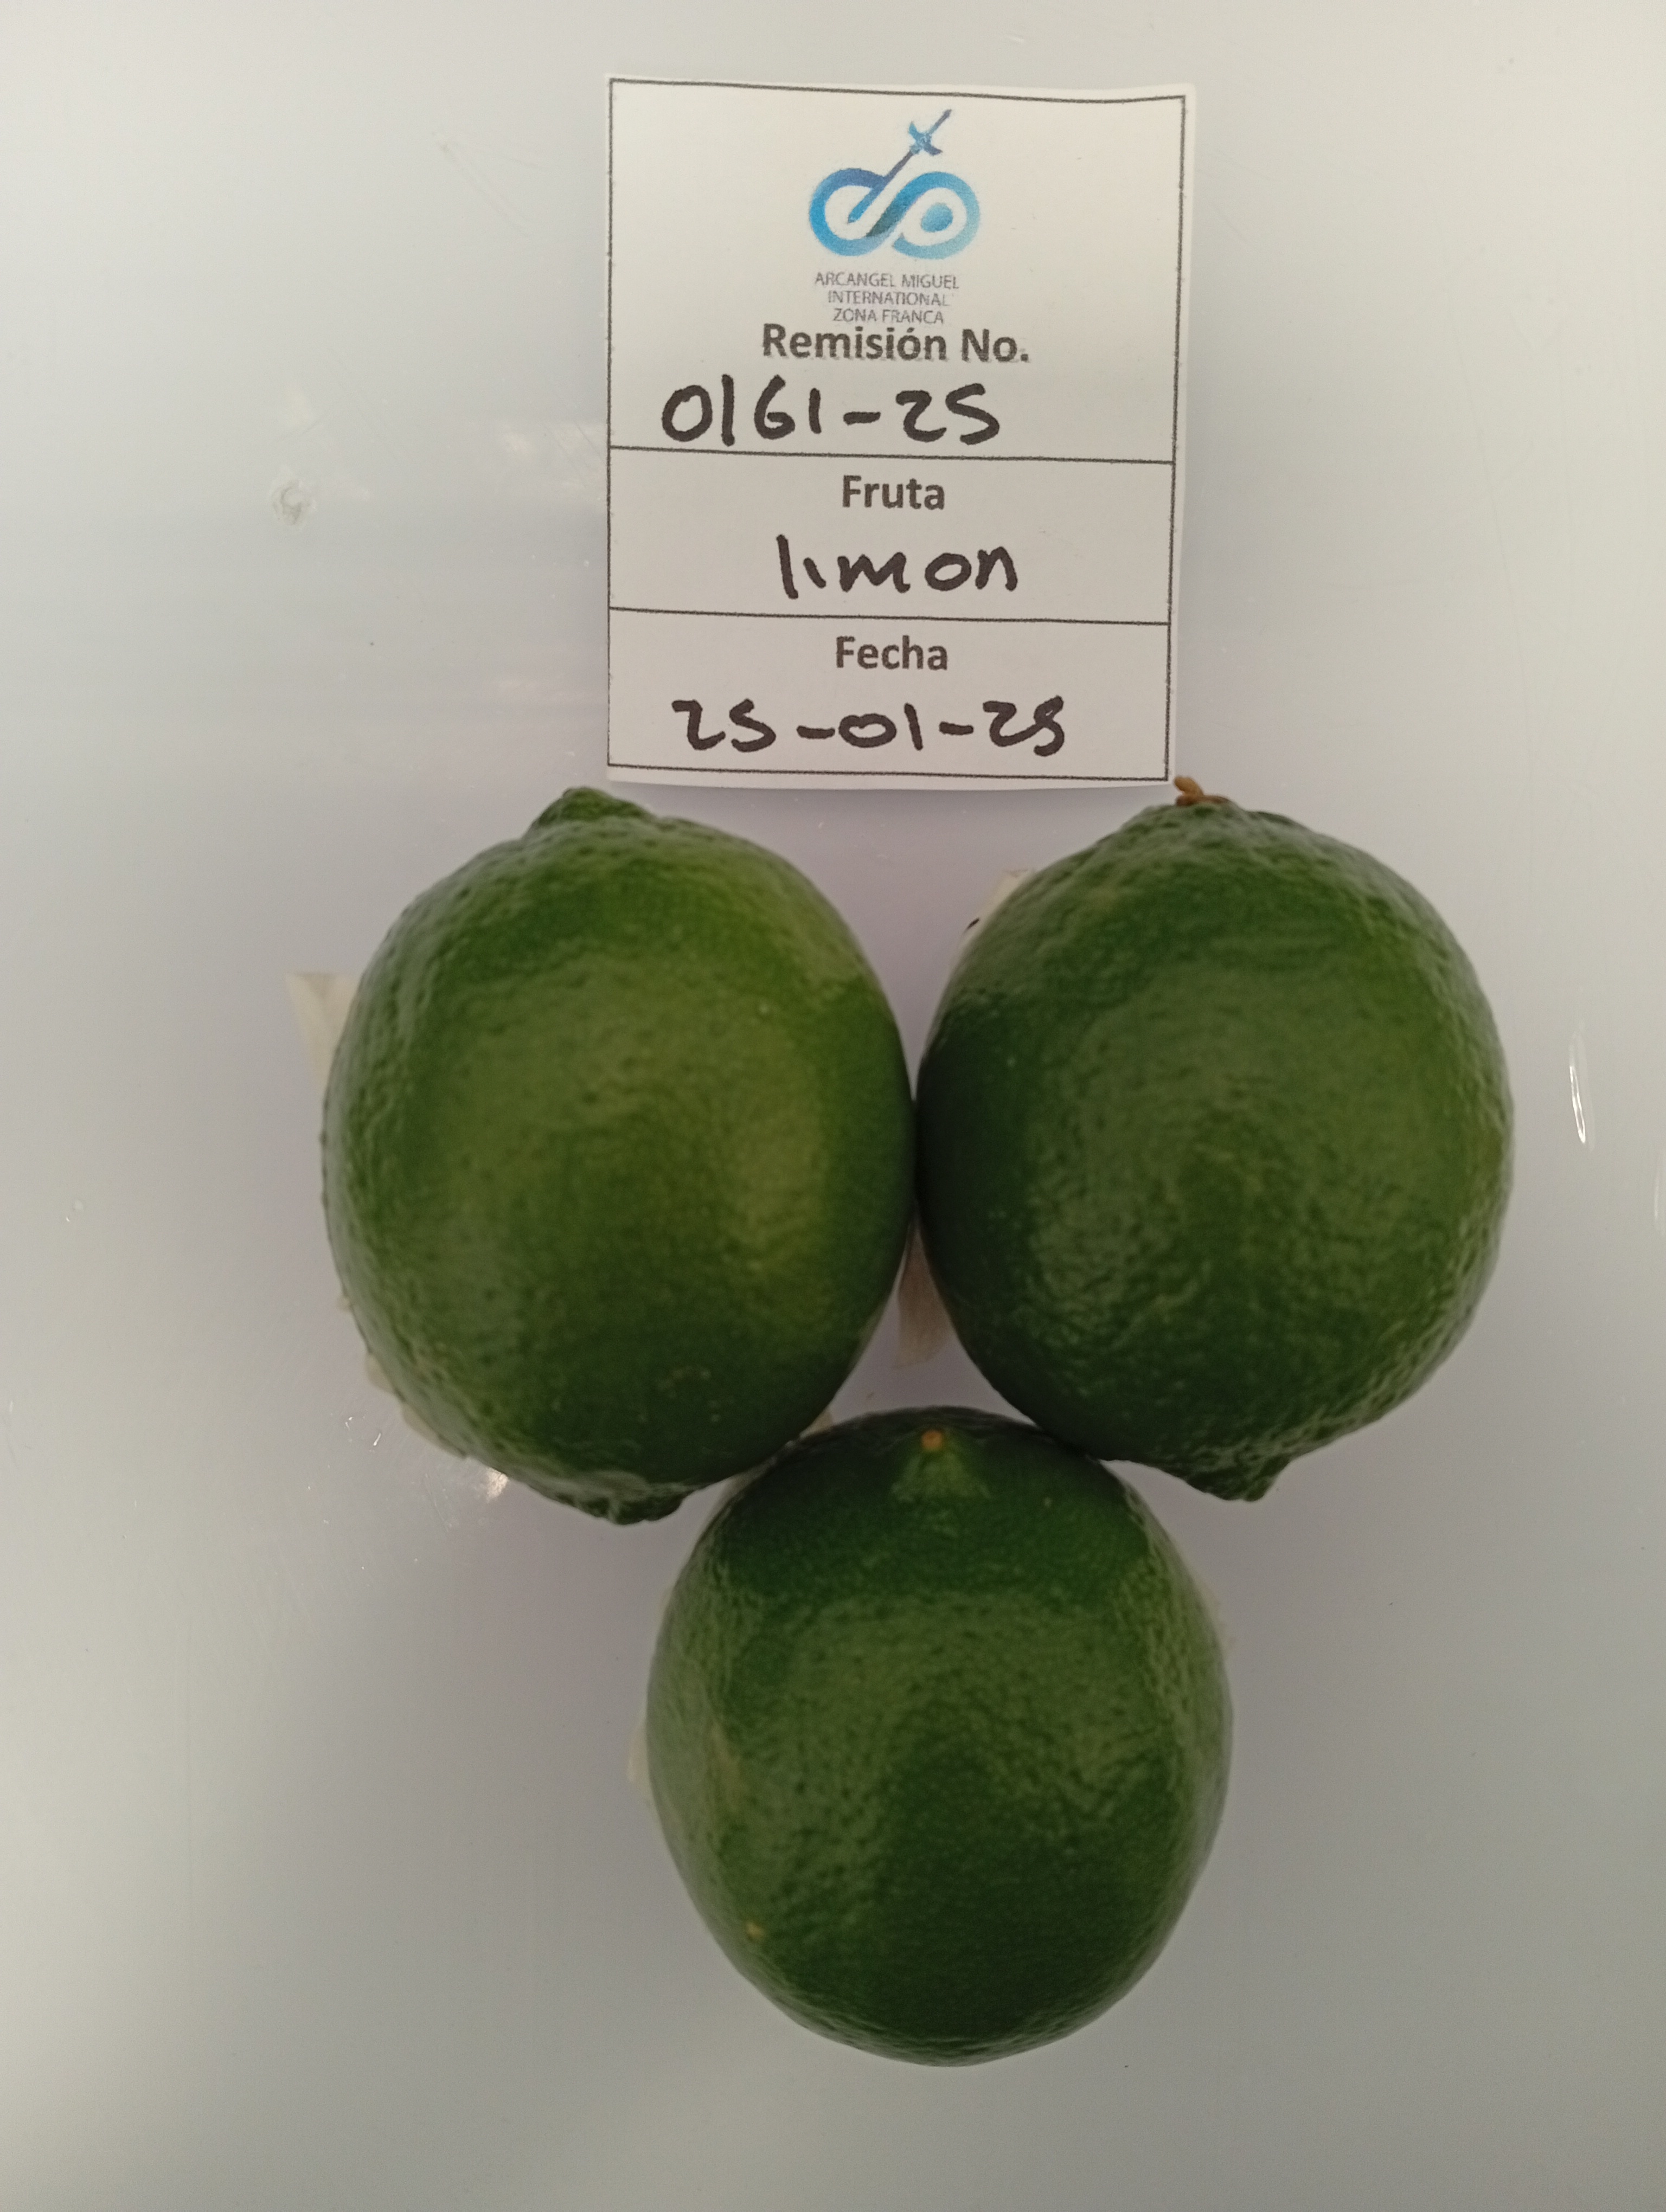 ARCANGEL MIGUEL
INTERNATIONAL
ZONA FRANCA
Remisión No.
0161-25
Fruta
limon
Fecha
25-01-25